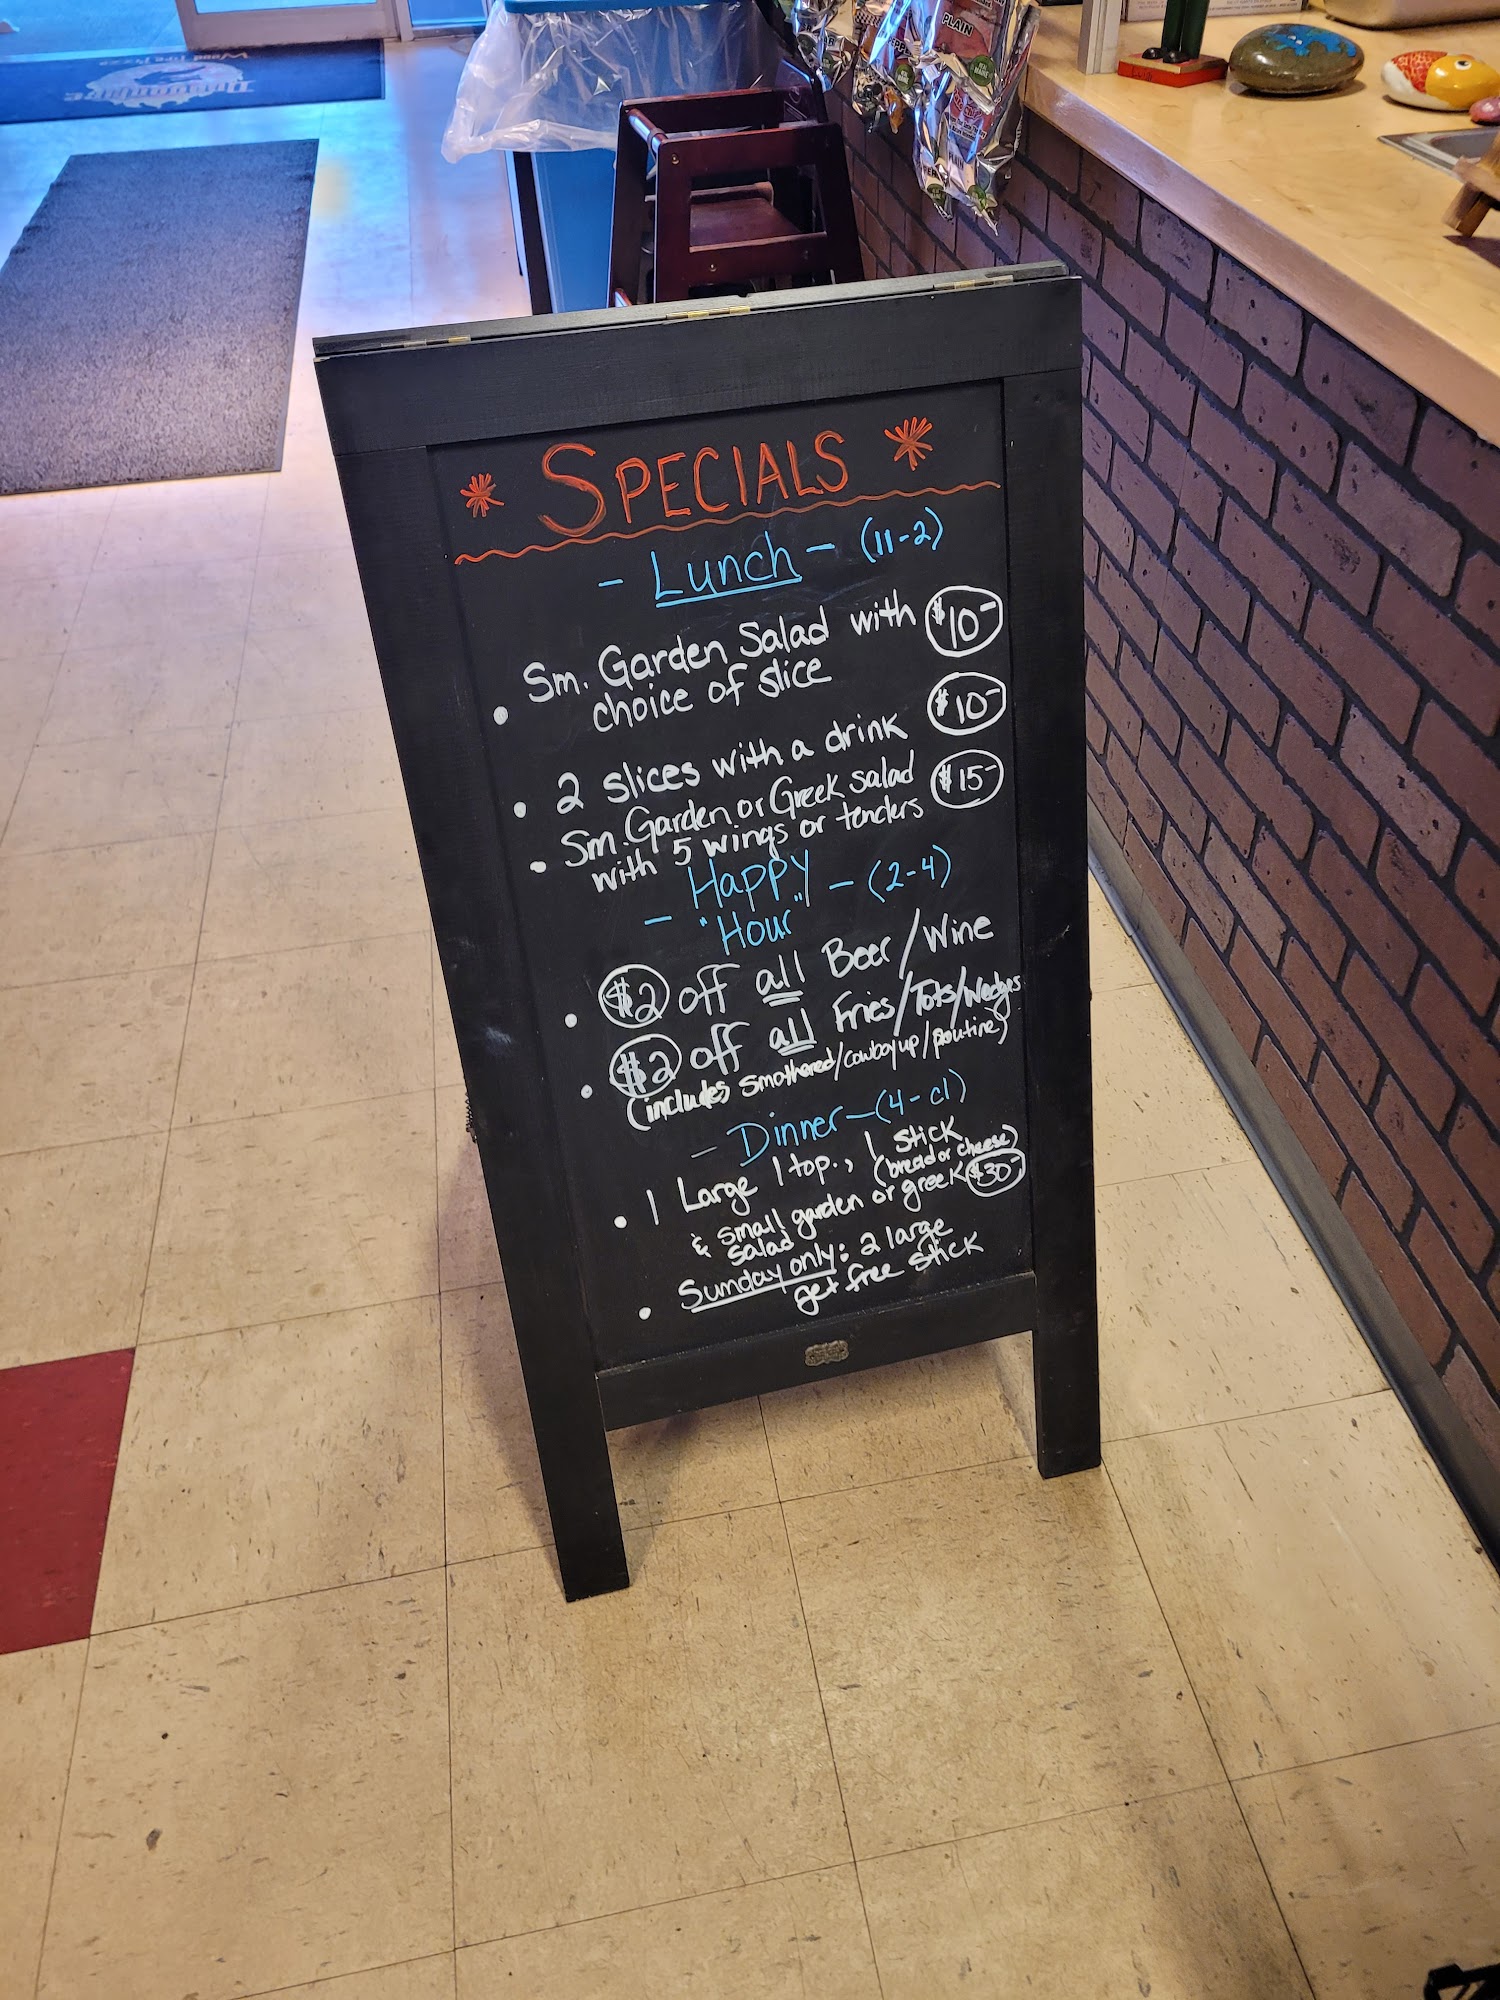 Dragonfire
Wood Fire Pizza
PLAIN
* SPECIALS *
- Lunch - (11-2)
• Sm. Garden Salad with $10-
choice of slice
• 2 slices with a drink $10-
• Sm. Garden or Greek salad $15-
with 5 wings or tenders
- Happy - (2-4)
"Hour"
• $2 off all Beer/Wine
• $2 off all Fries/Tots/Wedges
(includes smothered/cowboy up/poutine)
- Dinner - (4-cl)
• 1 Large 1 top., 1 stick
(bread or cheese)
& small garden or greek $30-
salad
• Sunday only: 2 large
get free stick